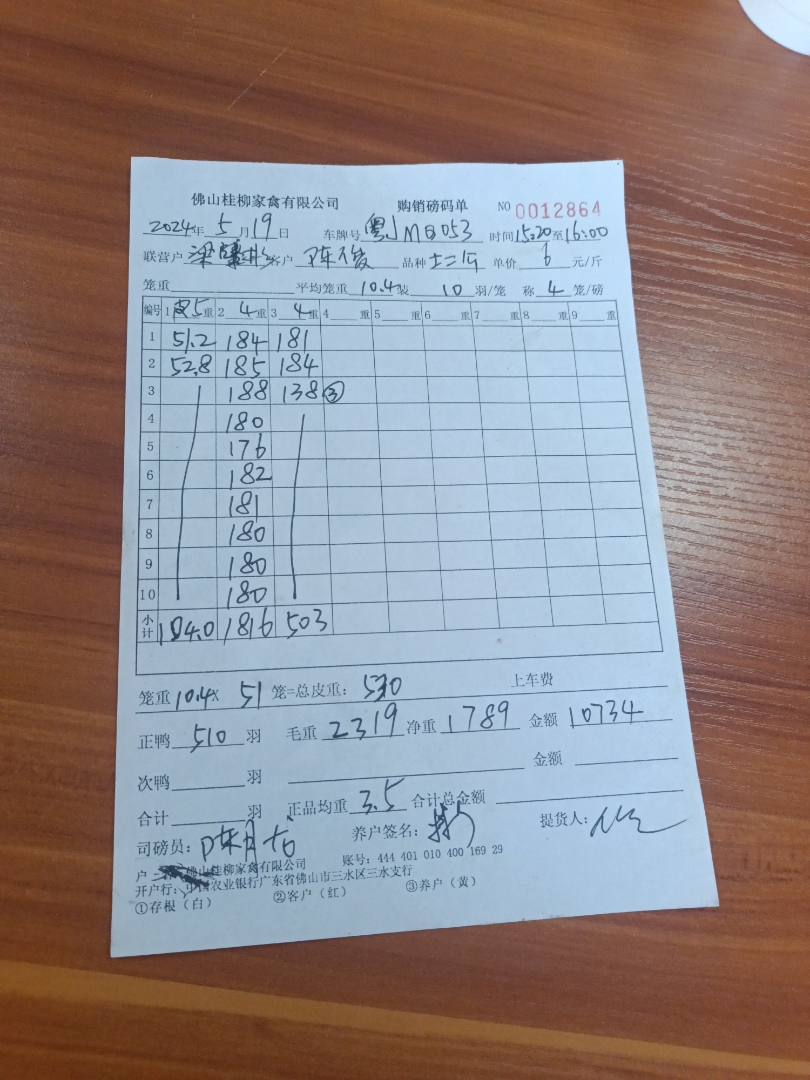 佛山桂柳家禽有限公司 购销磅码单 NO 0012864
2024年 5月19日 车牌号 粤J MQ053 时间15:20至16:00
联营户 梁 客户 陈 品种 单价 6 元/斤
笼重 平均笼重 10.4 装 10 羽/笼 称 4 笼/磅
编号 1 皮5重 2 4重 3 4重 4 重 5 重 6 重 7 重 8 重 9 重
1 51.2 184 181
2 52.8 185 184
3 188 138③
4 180
5 176
6 182
7 181
8 180
9 180
10 180
小计 104.0 1816 503
笼重10.4× 51 笼=总皮重: 530 上车费
正鸭 510 羽 毛重 2319 净重 1789 金额 10734
次鸭 羽 金额
合计 羽 正品均重 3.5 合计总金额
司磅员: 陈 养户签名: 提货人:
户 佛山桂柳家禽有限公司 账号: 444 401 010 400 169 29
开户行: 中国农业银行广东省佛山市三水区三水支行
①存根（白） ②客户（红） ③养户（黄）